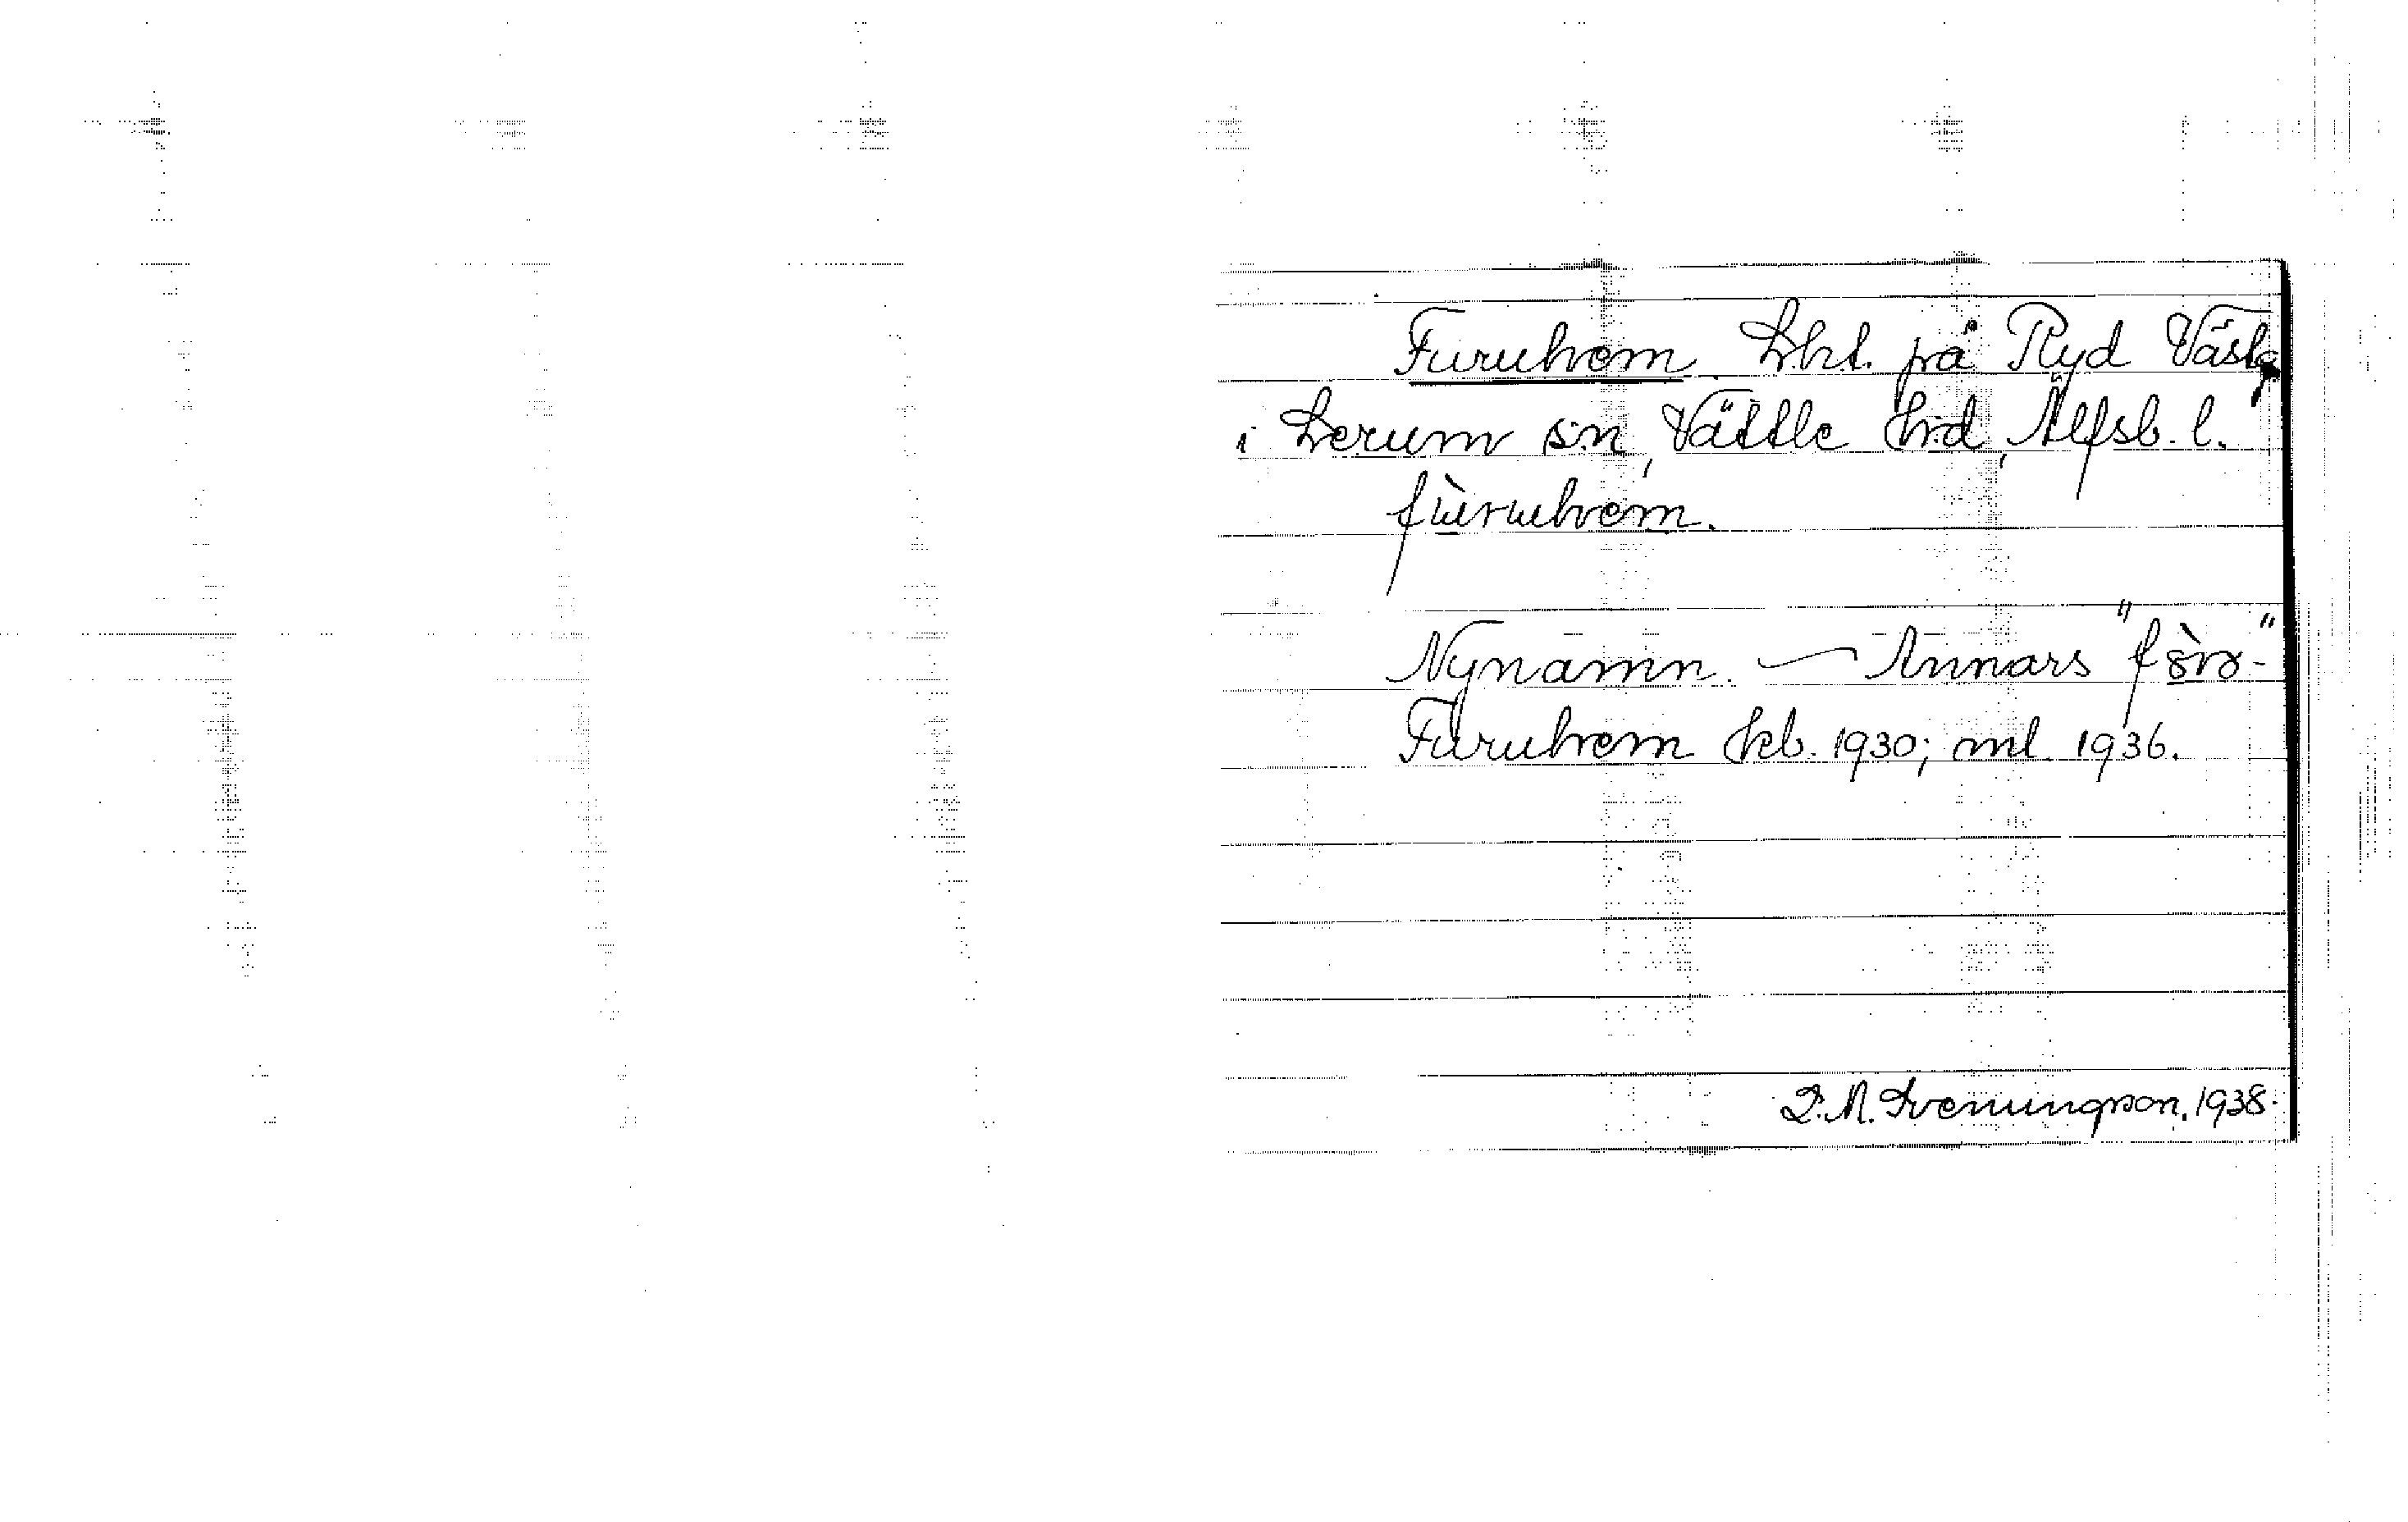 Furuhem. Lht. på Ryd Västg.
i Lerum sn, Vättle hd, Älfsb. l.
fùruhem.
Nynamn. — Annars "fòro-"
Furuhem kb. 1930; ml. 1936.
D. A. Svenungson. 1938.